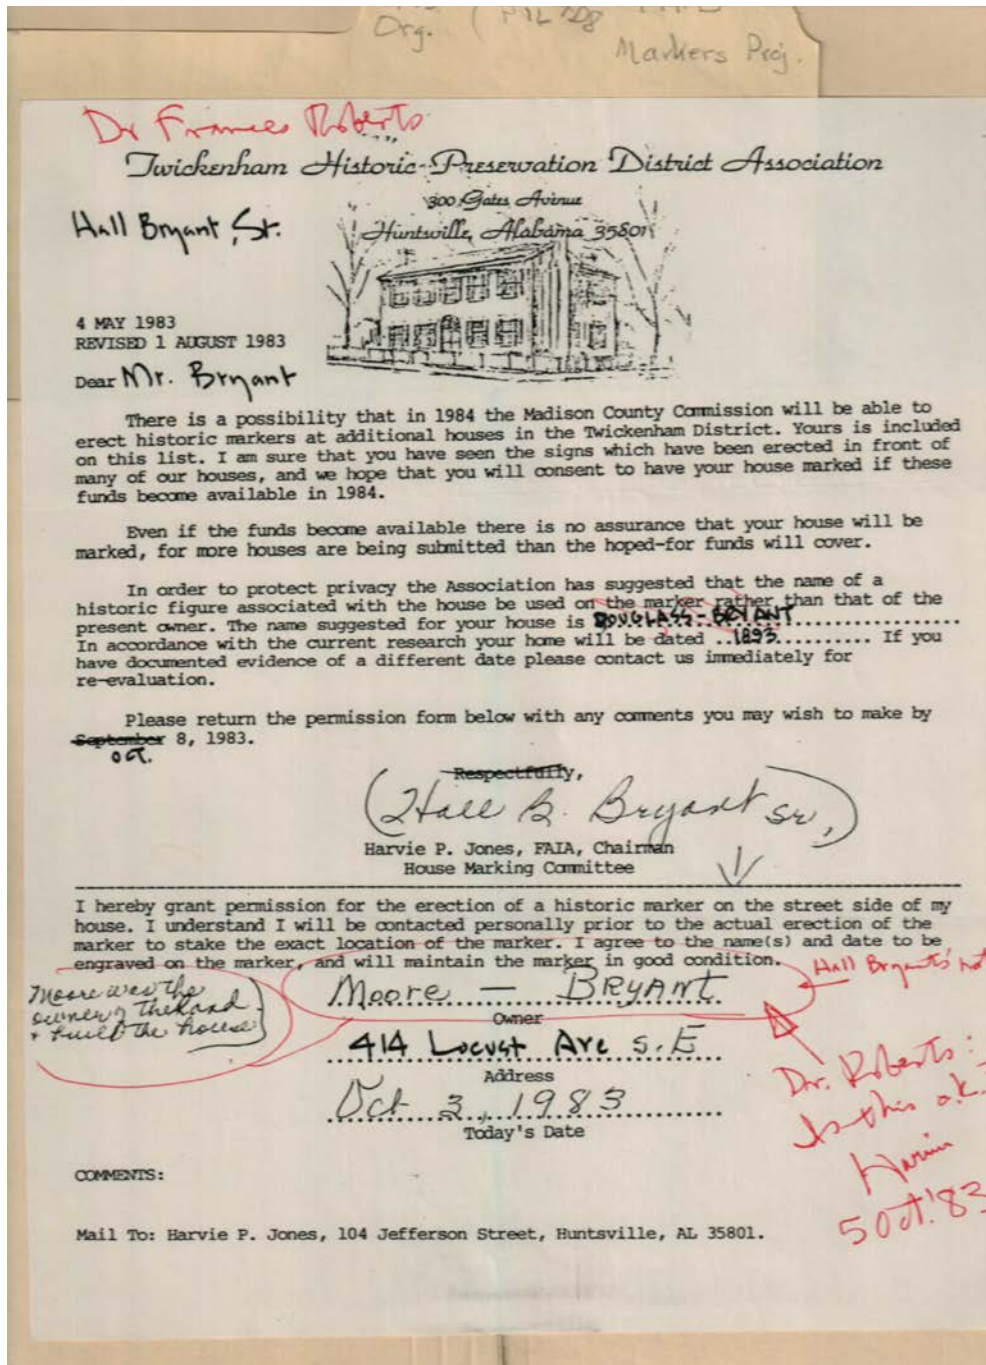 Org.
Markers Proj.
Dr Frances Roberts
Twickenham Historic-Preservation District Association
300 Gates Avenue
Huntsville, Alabama 35801
Hall Bryant, Sr.
4 MAY 1983
REVISED 1 AUGUST 1983
Dear Mr. Bryant
There is a possibility that in 1984 the Madison County Commission will be able to
erect historic markers at additional houses in the Twickenham District. Yours is included
on this list. I am sure that you have seen the signs which have been erected in front of
many of our houses, and we hope that you will consent to have your house marked if these
funds become available in 1984.
Even if the funds become available there is no assurance that your house will be
marked, for more houses are being submitted than the hoped-for funds will cover.
In order to protect privacy the Association has suggested that the name of a
historic figure associated with the house be used on the marker rather than that of the
present owner. The name suggested for your house is DOUGLASS-BRYANT
In accordance with the current research your home will be dated ..1893.......... If you
have documented evidence of a different date please contact us immediately for
re-evaluation.
Please return the permission form below with any comments you may wish to make by
September 8, 1983.
OCT.
Respectfully,
(Hall B. Bryant Sr,)
Harvie P. Jones, FAIA, Chairman
House Marking Committee
I hereby grant permission for the erection of a historic marker on the street side of my
house. I understand I will be contacted personally prior to the actual erection of the
marker to stake the exact location of the marker. I agree to the name(s) and date to be
engraved on the marker, and will maintain the marker in good condition.
Hall Bryant's
Moore was the
owner of the land
& built the house
Moore — BRYANT
Owner
414 Locust Ave S.E
Address
Oct 3, 1983
Today's Date
Dr. Roberts:
Is this o.k.
Harvie
5 Oct. '83
COMMENTS:
Mail To: Harvie P. Jones, 104 Jefferson Street, Huntsville, AL 35801.